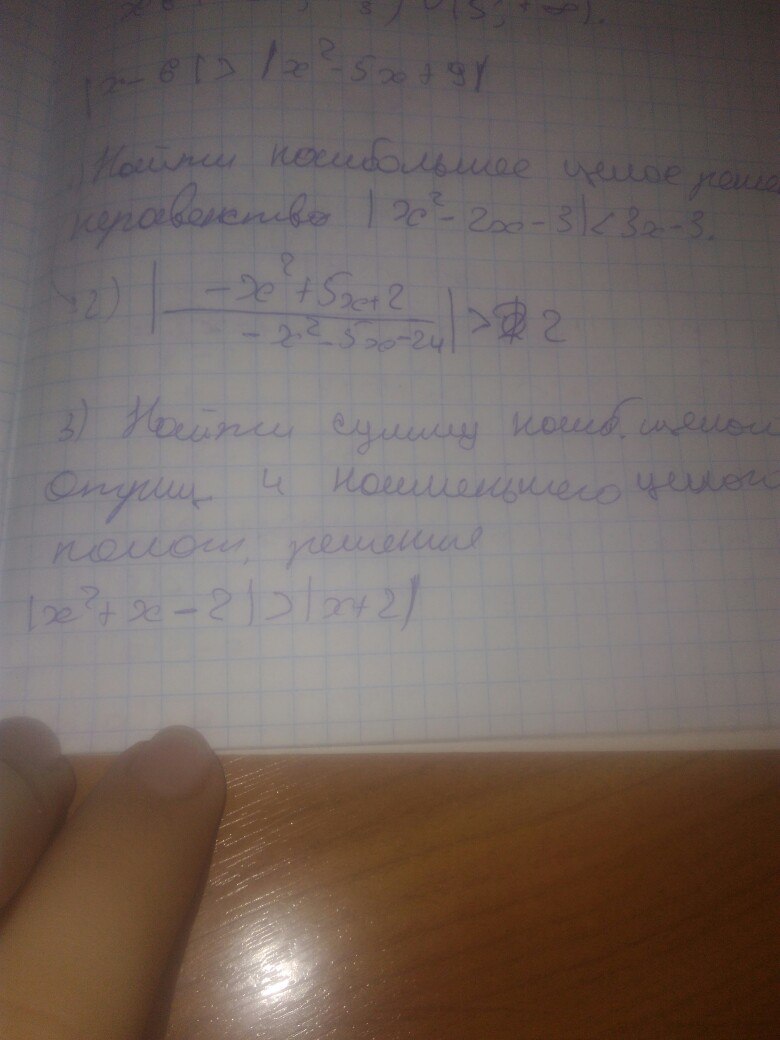 |x - 6| > |x² - 5x + 9|
Найти наибольшее целое реше
неравенства |x² - 2x - 3| < 3x - 3.
2) |(-x² + 5x + 2)/(-x² - 5x - 24)| > 2
3) Найти сумму наиб. целого
отриц. и наименьшего целого
полож. решения
|x² + x - 2| > |x + 2|